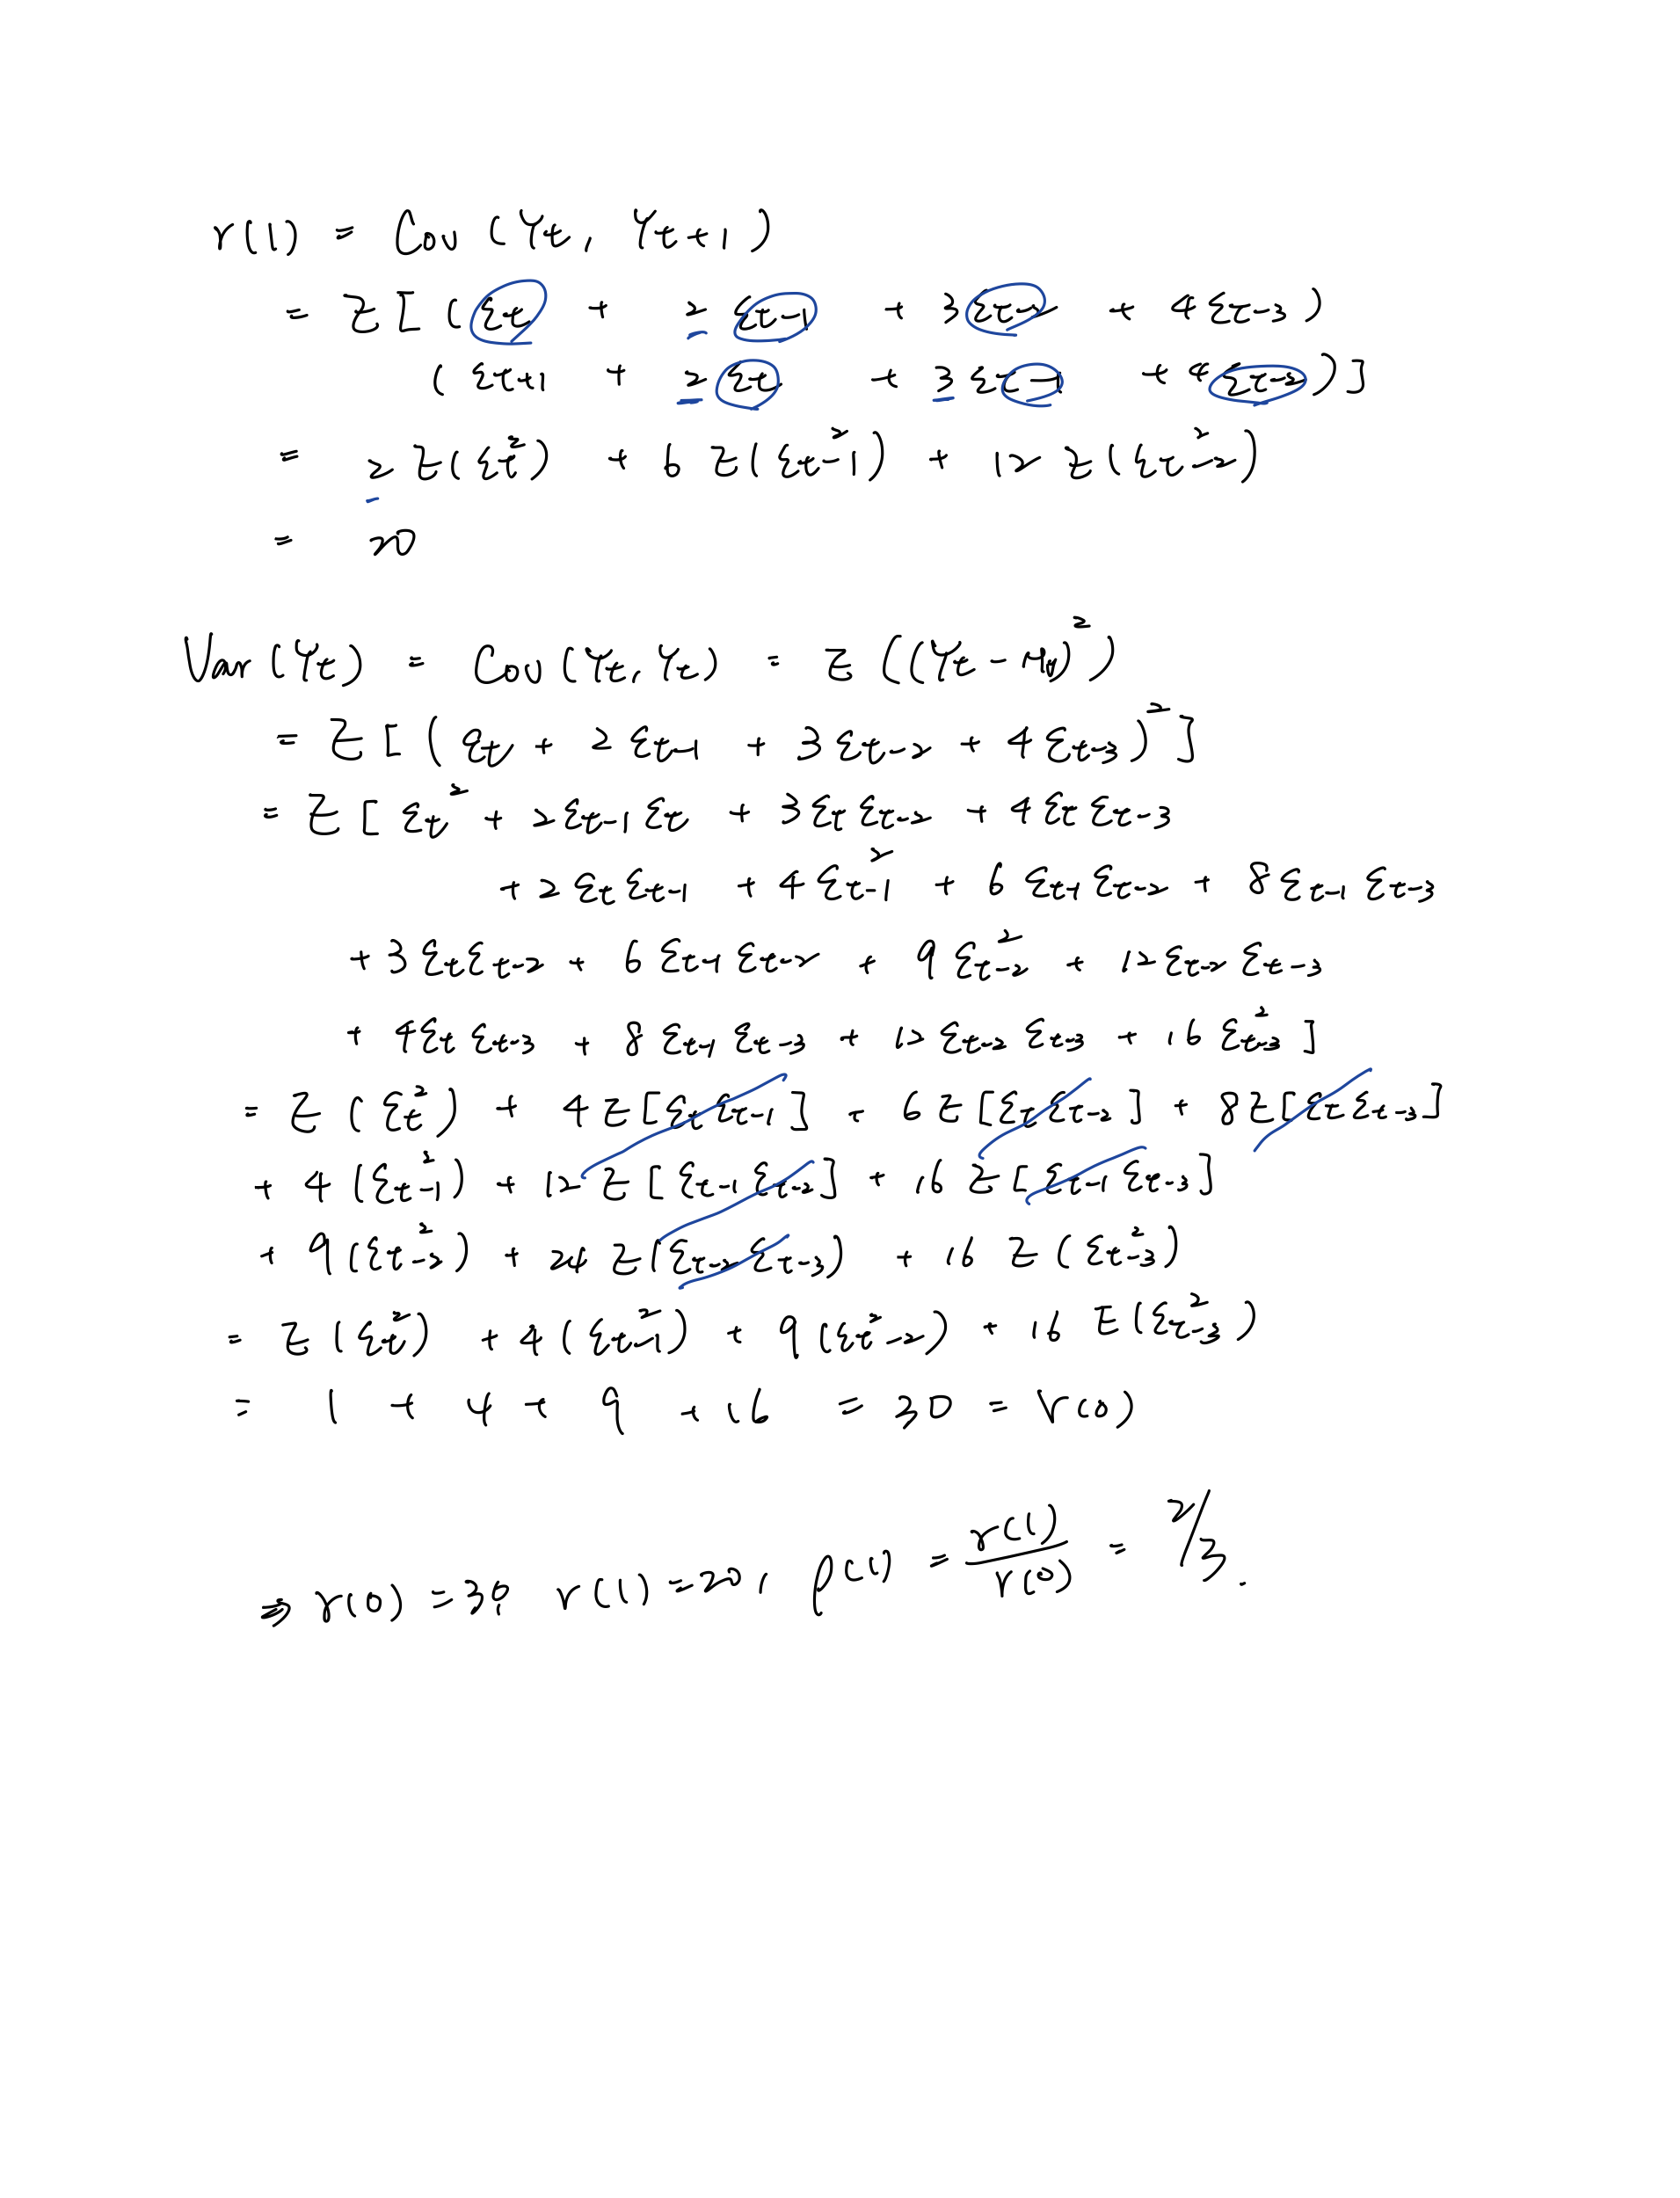 r(1) = Cov (Yt, Yt+1)
= E[ (εt + 2 εt-1 + 3 εt-2 + 4 εt-3)
( εt+1 + 2 εt + 3 εt-1 + 4 εt-2 )]
= 2 E(εt²) + 6 E(εt-1²) + 12 E(εt-2²)
= 20
Var(Yt) = Cov(Yt, Yt) = E ((Yt - M)²)
= E[ (εt + 2 εt-1 + 3 εt-2 + 4 εt-3)²]
= E[ εt² + 2εt-1 εt + 3εt εt-2 + 4 εt εt-3
+ 2 εt εt-1 + 4 εt-1² + 6 εt-1 εt-2 + 8 εt-1 εt-3
+ 3 εt εt-2 + 6 εt-1 εt-2 + 9 εt-2² + 12 εt-2 εt-3
+ 4εt εt-3 + 8 εt-1 εt-3 + 12 εt-2 εt-3 + 16 εt-3² ]
= E (εt²) + 4 E[εt εt-1] + 6 E[εt εt-2] + 8E[εt εt-3]
+ 4 (εt-1²) + 12 E[εt-1 εt-2] + 16 E[εt-1 εt-3]
+ 9(εt-2²) + 24 E(εt-2 εt-3) + 16 E (εt-3²)
= E (εt²) + 4 (εt-1²) + 9 (εt-2²) + 16 E(εt-3²)
= 1 + 4 + 9 + 16 = 30 = r(0)
⇒ r(0) = 30, r(1) = 20, ρ(1) = r(1)/r(0) = 2/3.